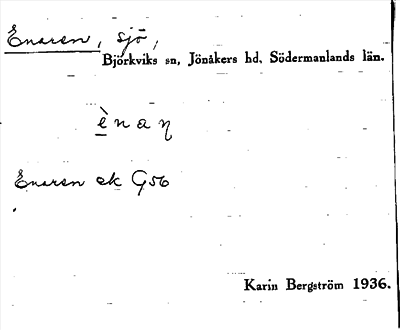 Enaren, sjö,
Björkviks sn, Jönåkers hd, Södermanlands län.
ènaη
Enaren ek G56
Karin Bergström 1936.